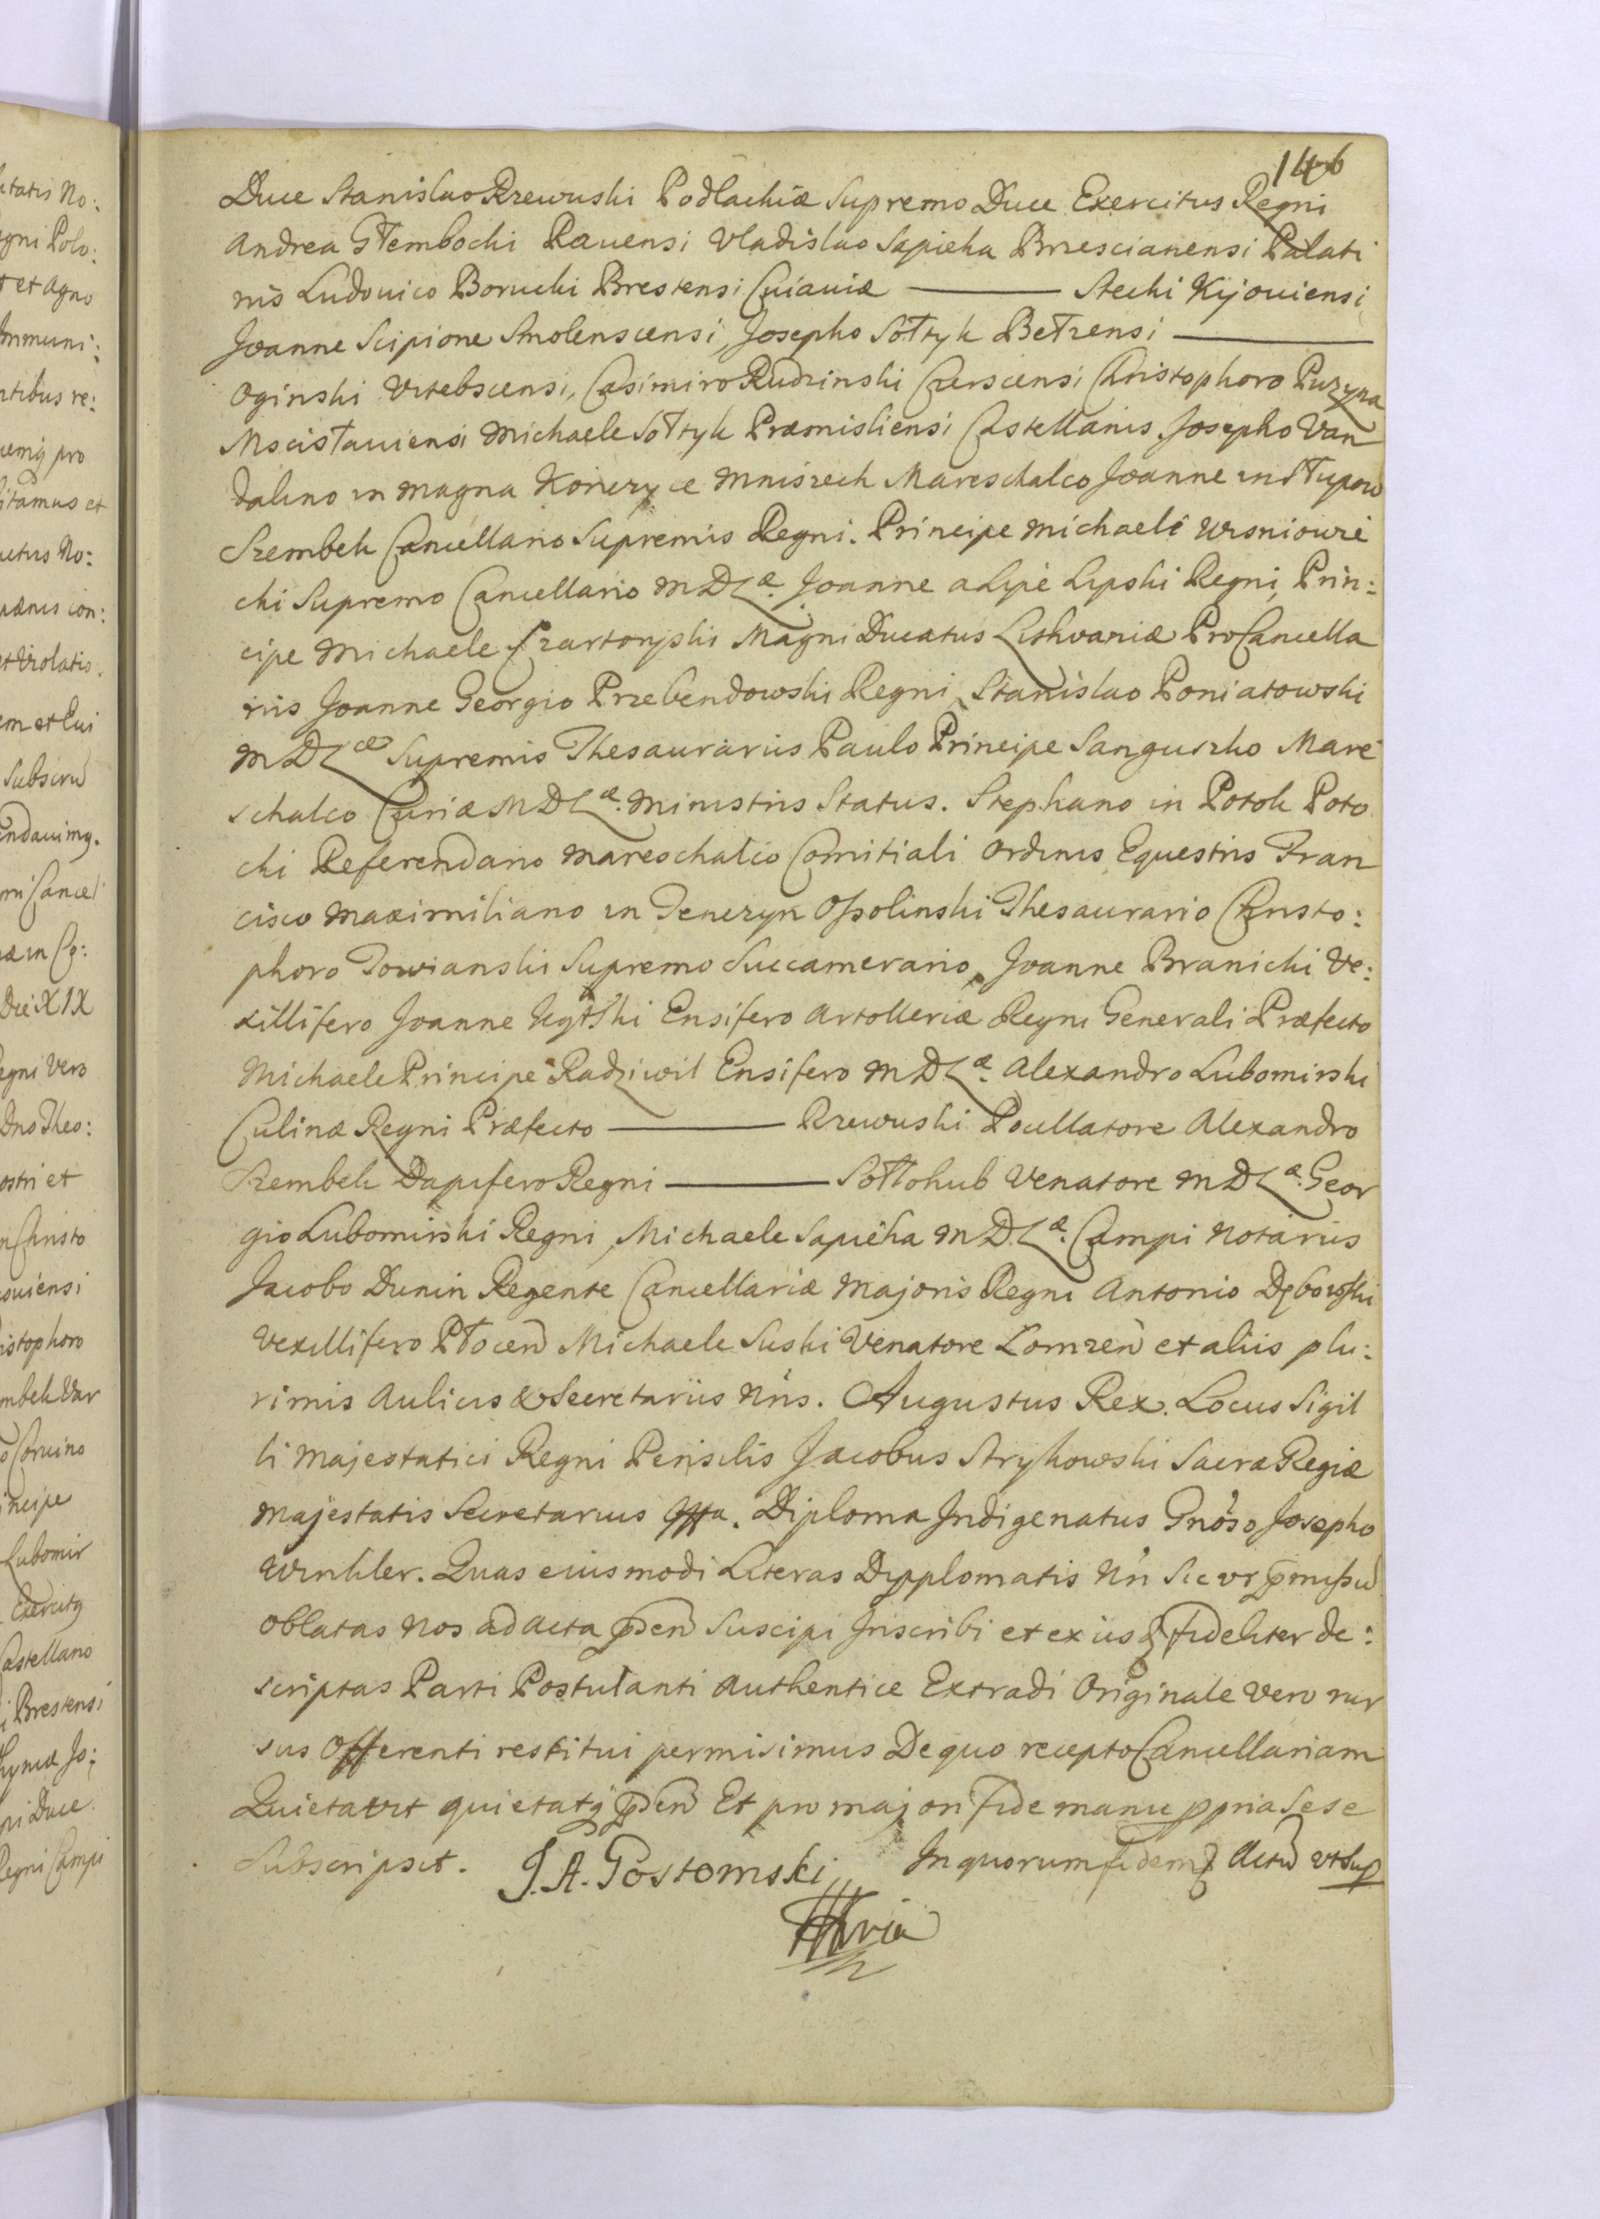 146
Duce Stanislao Rzewuski Podlachiæ Supremo Duce Exercitus Regni
Andrea Głembocki Rauensi Vladislao Sapieha Brzescianensi Palati
nis Ludouico Borucki Brestensi Cuiauiæ ——— Stecki Kijouiensi
Joanne Scipione Smolenscensi, Josepho Sołtyk Bełzensi ———
Oginski Vitebscensi, Casimiro Rudzinski Czerscensi Christophoro Puzyna
Mscisłauiensi Michaele Sołtyk Præmisliensi Castellanis. Josepho Van
dalino in magna Konczyce Mniszech Mareschalco Joanne in Słupow
Szembek Cancellario Supremis Regni. Principe Michaele Wisniowie
cki Supremo Cancellario MDLæ. Joanne a Lipe Lipski Regni, Prin:
cipe Michaele Czartoryski Magni Ducatus Lithvaniæ ProCancella
riis Joanne Georgio Przebendowski Regni, Stanislao Poniatowski
MDLæ Supremis Thesaurariis Paulo Principe Sanguszko Mare
schalco Curiæ MDLæ. Ministris Status. Stephano in Potok Poto
cki Referendario Mareschalco Comitiali Ordinis Equestris Fran
cisco Maximiliano in Tenczyn Ossolinski Thesaurario Christo:
phoro Towianski Supremo Succamerario, Joanne Branicki Ve:
xillifero Joanne Ensifero Artolleriæ Regni Generali Præfecto
Michaele Principe Radziwil Ensifero MDLæ. Alexandro Lubomirski
Culinæ Regni Præfecto ——— Rzewuski Pocillatore Alexandro
Szembek Dapifero Regni ——— Sołłohub Venatore MDLæ. Geor
gio Lubomirski Regni, Michaele Sapieha MDLæ. Campi Notariis
Jacobo Dunin Regente Cancellariæ Majoris Regni Antonio Dębowski
Vexillifero Płocen Michaele Suski Venatore Lomzen et aliis plu:
rimis Aulicis & Secretariis Nris. Augustus Rex. Locus Sigil
li Majestatici Regni Pensilis Jacobus Strykowski Sacræ Regiæ
Majestatis Secretarius Diploma Indigenatus Gnoso Josepho
Winkler. Quas eiusmodi Literas Dypplomatis Nri Sic vt
oblatas Nos ad Acta Suscipi Inscribi et ex iis fideliter de:
scriptas Parti Postulanti Authentice Extradi Originale vero rur
sus Offerenti restitui permisimus De quo recepto Cancellariam
Quietavit quietatq Et pro majori fide manu ppria Sese
Subscripsit. J. A. Gostomski In quorum fidem Actu vt Sup